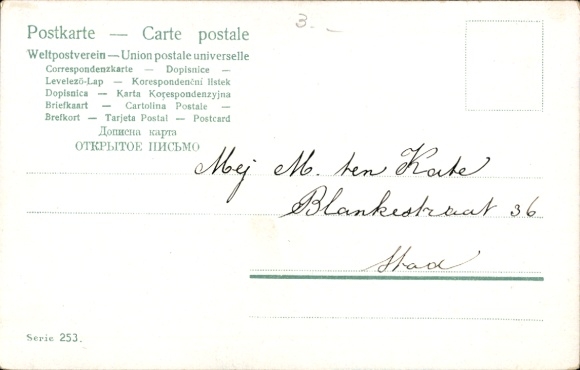 3. -
Postkarte — Carte postale
Weltpostverein — Union postale universelle
Correspondenzkarte — Dopisnice —
Levelező-Lap — Korespondenční lístek
Dopisnica — Karta Korespondenzyjna
Briefkaart — Cartolina Postale —
Brefkort — Tarjeta Postal — Postcard
Дописна карта
ОТКРЫТОЕ ПИСЬМО
Mej M. ten Kate
Blankestraat 36
Stad
Serie 253.